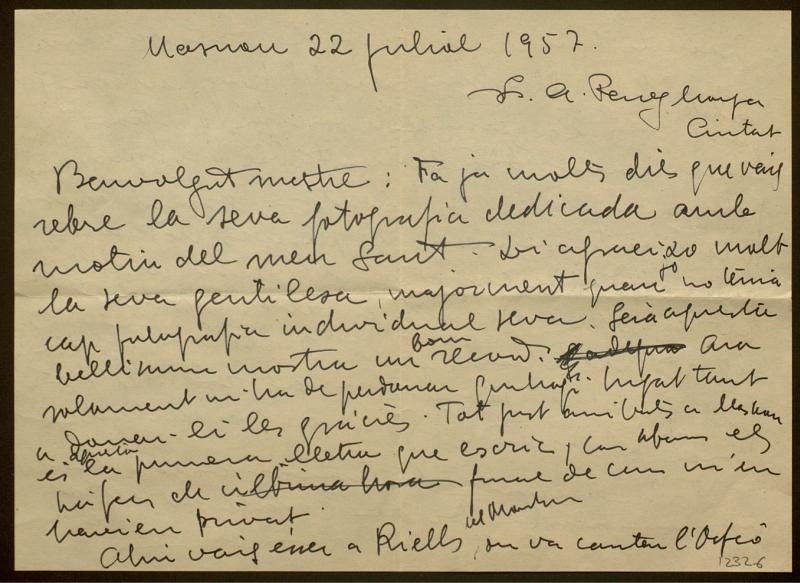 Masnou 22 juliol 1957.
Sr. A.
Ciutat
Benvolgut mestre: Fa ja molts dies que vaig
rebre la seva fotografia dedicada amb
motiu del meu Sant. Li agraeixo molt
la seva gentilesa, majorment quan jo no tenia
cap fotografia individual seva. Serà aquesta
bellissima mostra un bon record. Ara
solament m'ha de perdonar que hagi trigat tant
a donar-li les gràcies. Tot just arribats a Masnou
és aquesta la primera lletra que escric, car abans els
de última hora de casa m'en
havien privat.
Ahir vaig ésser a Riells del Montseny, on va cantar l'Orfeó
1232-6